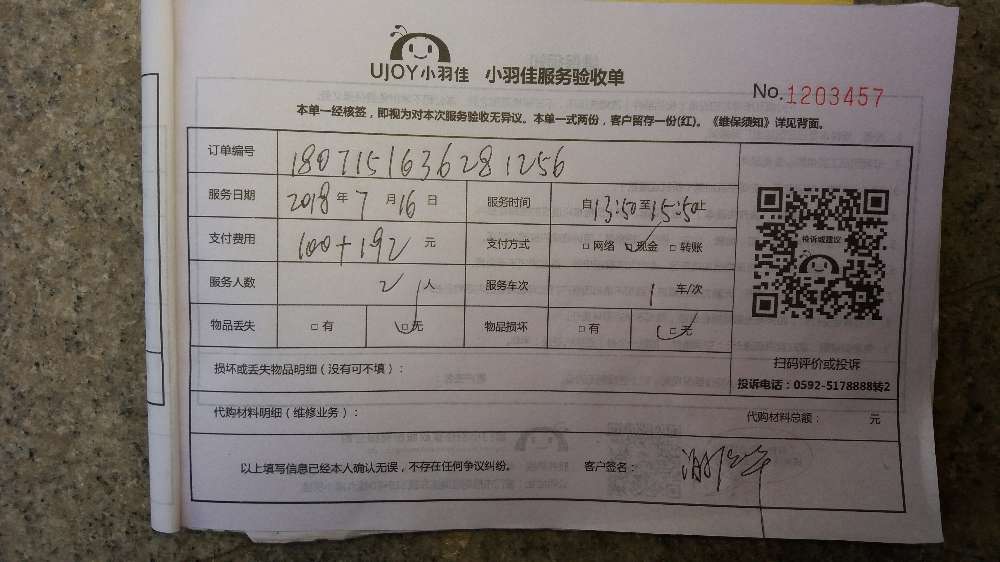 UJOY小羽佳 小羽佳服务验收单
No.1203457
本单一经核签，即视为对本次服务验收无异议。本单一式两份，客户留存一份(红)。《维保须知》详见背面。
订单编号 180715163628 1256
服务日期 2018 年 7 月 16 日 服务时间 自 13:50 至 15:50 止
支付费用 100+192 元 支付方式 □网络 □现金 □转账
投诉或建议
服务人数 2 人 服务车次 1 车/次
物品丢失 □有 □无 物品损坏 □有 □无
扫码评价或投诉
损坏或丢失物品明细（没有可不填）：
投诉电话：0592-5178888转2
代购材料明细（维修业务）： 代购材料总额： 元
以上填写信息已经本人确认无误，不存在任何争议纠纷。 客户签名：